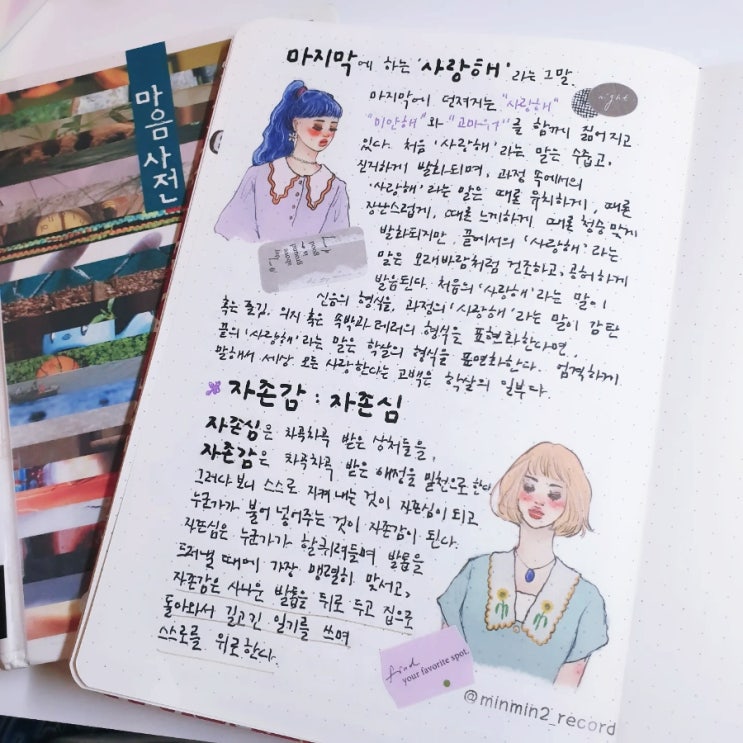 마음사전
마지막에 하는 '사랑해' 라는 그말.
night
마지막에 던져지는 "사랑해"
"미안해"와 "고마워"를 함께 짊어지고
있다. 처음 '사랑해' 라는 말은 수줍고,
진지하게 발화되며, 과정 속에서의
'사랑해' 라는 말은 때론 유치하게, 때론
장난스럽게, 때론 느끼하게 때론 청승맞게
발화되지만, 끝에서의 '사랑해' 라는
말은 모래바람처럼 건조하고, 공허하게
발음된다. 처음의 '사랑해' 라는 말이
신음의 형식을, 과정의 '사랑해' 라는 말이 감탄
혹은 즐김, 의지 혹은 속박과 테러의 형식을 표현화한다면,
끝의 '사랑해' 라는 말은 학살의 형식을 표면화한다. 엄격하게
말해서 세상 모든 사랑한다는 고백은 학살의 일부다.
자존감 : 자존심
자존심은 차곡차곡 받은 상처들을,
자존감은 차곡차곡 받은 애정을 밑천으로 한다
그러다 보니 스스로 지켜 내는 것이 자존심이 되고
누군가가 불어 넣어주는 것이 자존감이 된다.
자존심은 누군가가 할퀴려들며 발톱을
드러낼 때에 가장 맹렬히 맞서고,
자존감은 사나운 발톱을 뒤로 두고 집으로
돌아와서 길고 긴 일기를 쓰며
스스로를 위로한다.
find
your favorite spot.
@minmin2_record